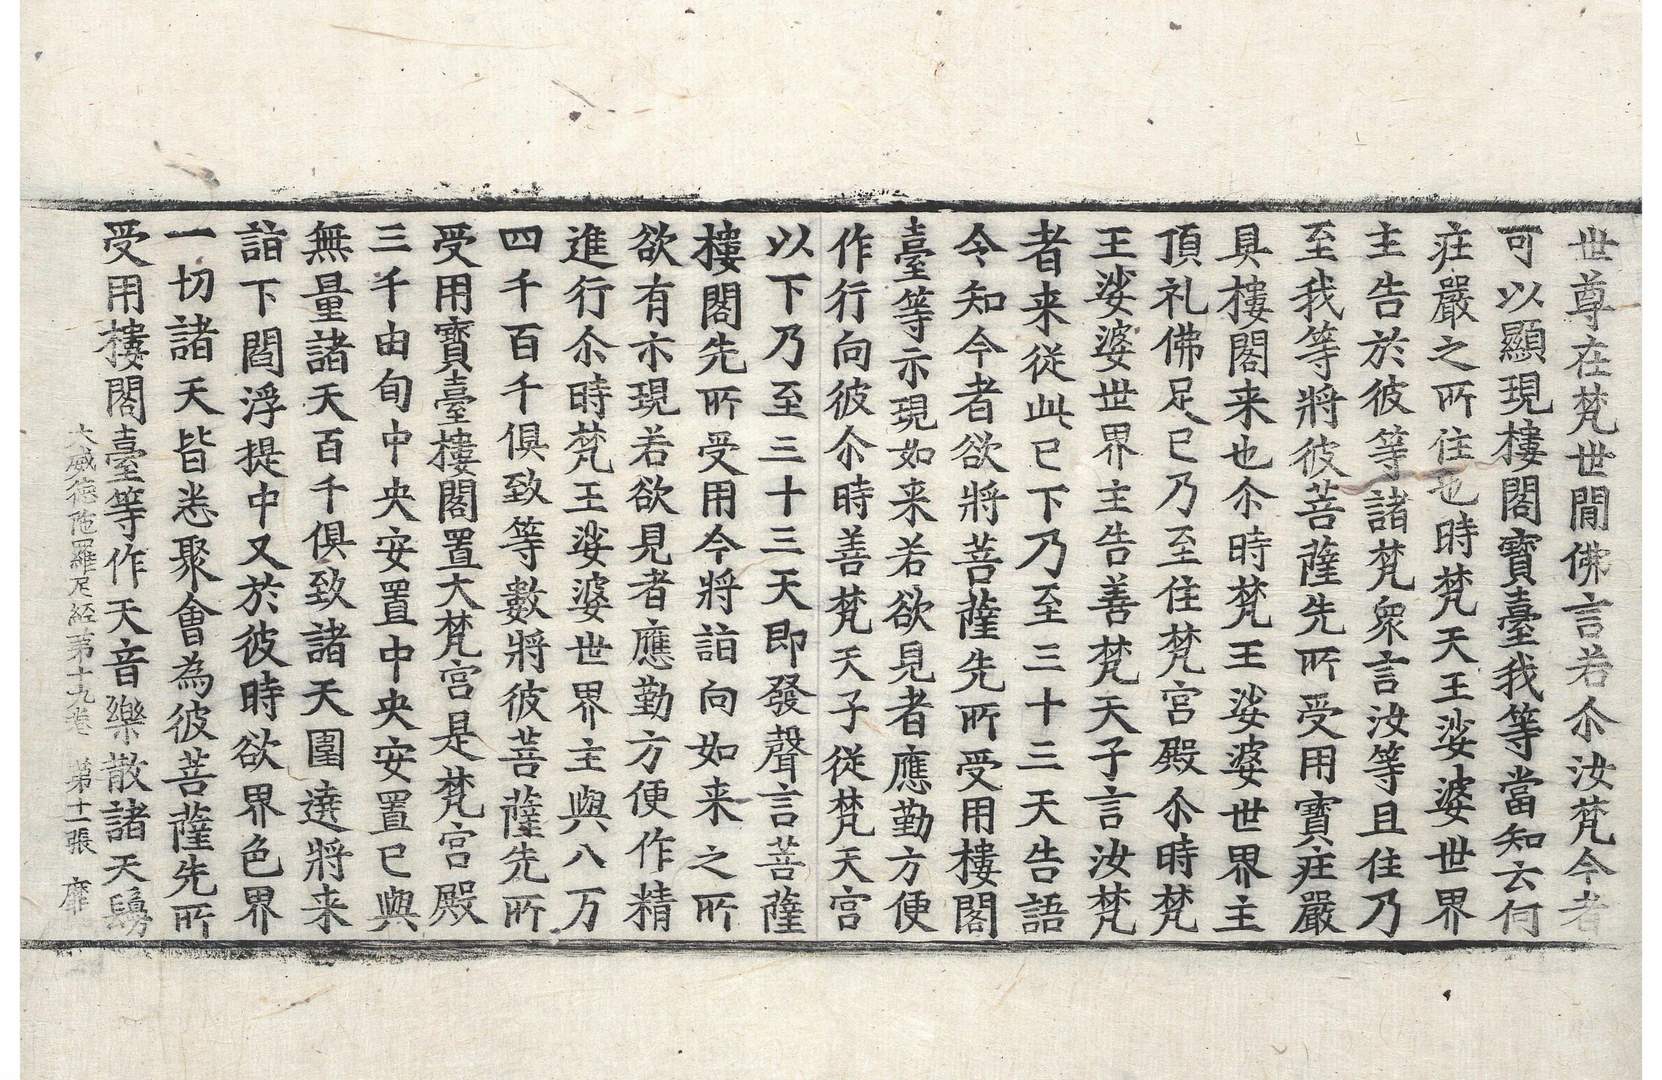 世尊在梵世間佛言若尒汝梵今者
可以顯現樓閣寶臺我等當知云何
庄嚴之所住也時梵天王娑婆世界
主告於彼等諸梵衆言汝等且住乃
至我等將彼菩薩先所受用寶庄嚴
具樓閣来也尒時梵王娑婆世界主
頂礼佛足已乃至住梵宮殿尒時梵
王娑婆世界主告善梵天子言汝梵
者来從此已下乃至三十三天告語
令知今者欲將菩薩先所受用樓閣
臺等示現如来若欲見者應勤方便
作行向彼尒時善梵天子從梵天宮
以下乃至三十三天即發聲言菩薩
樓閣先所受用今將詣向如来之所
欲有示現若欲見者應勤方便作精
進行尒時梵王娑婆世界主與八万
四千百千俱致等數將彼菩薩先所
受用寶臺樓閣置大梵宮是梵宮殿
三千由旬中央安置中央安置已與
無量諸天百千俱致諸天圍遶將来
詣下閻浮提中又於彼時欲界色界
一切諸天皆悉聚會為彼菩薩先所
受用樓閣臺等作天音樂散諸天鬘
大威德陁羅尼經第十九卷 第十一張 靡